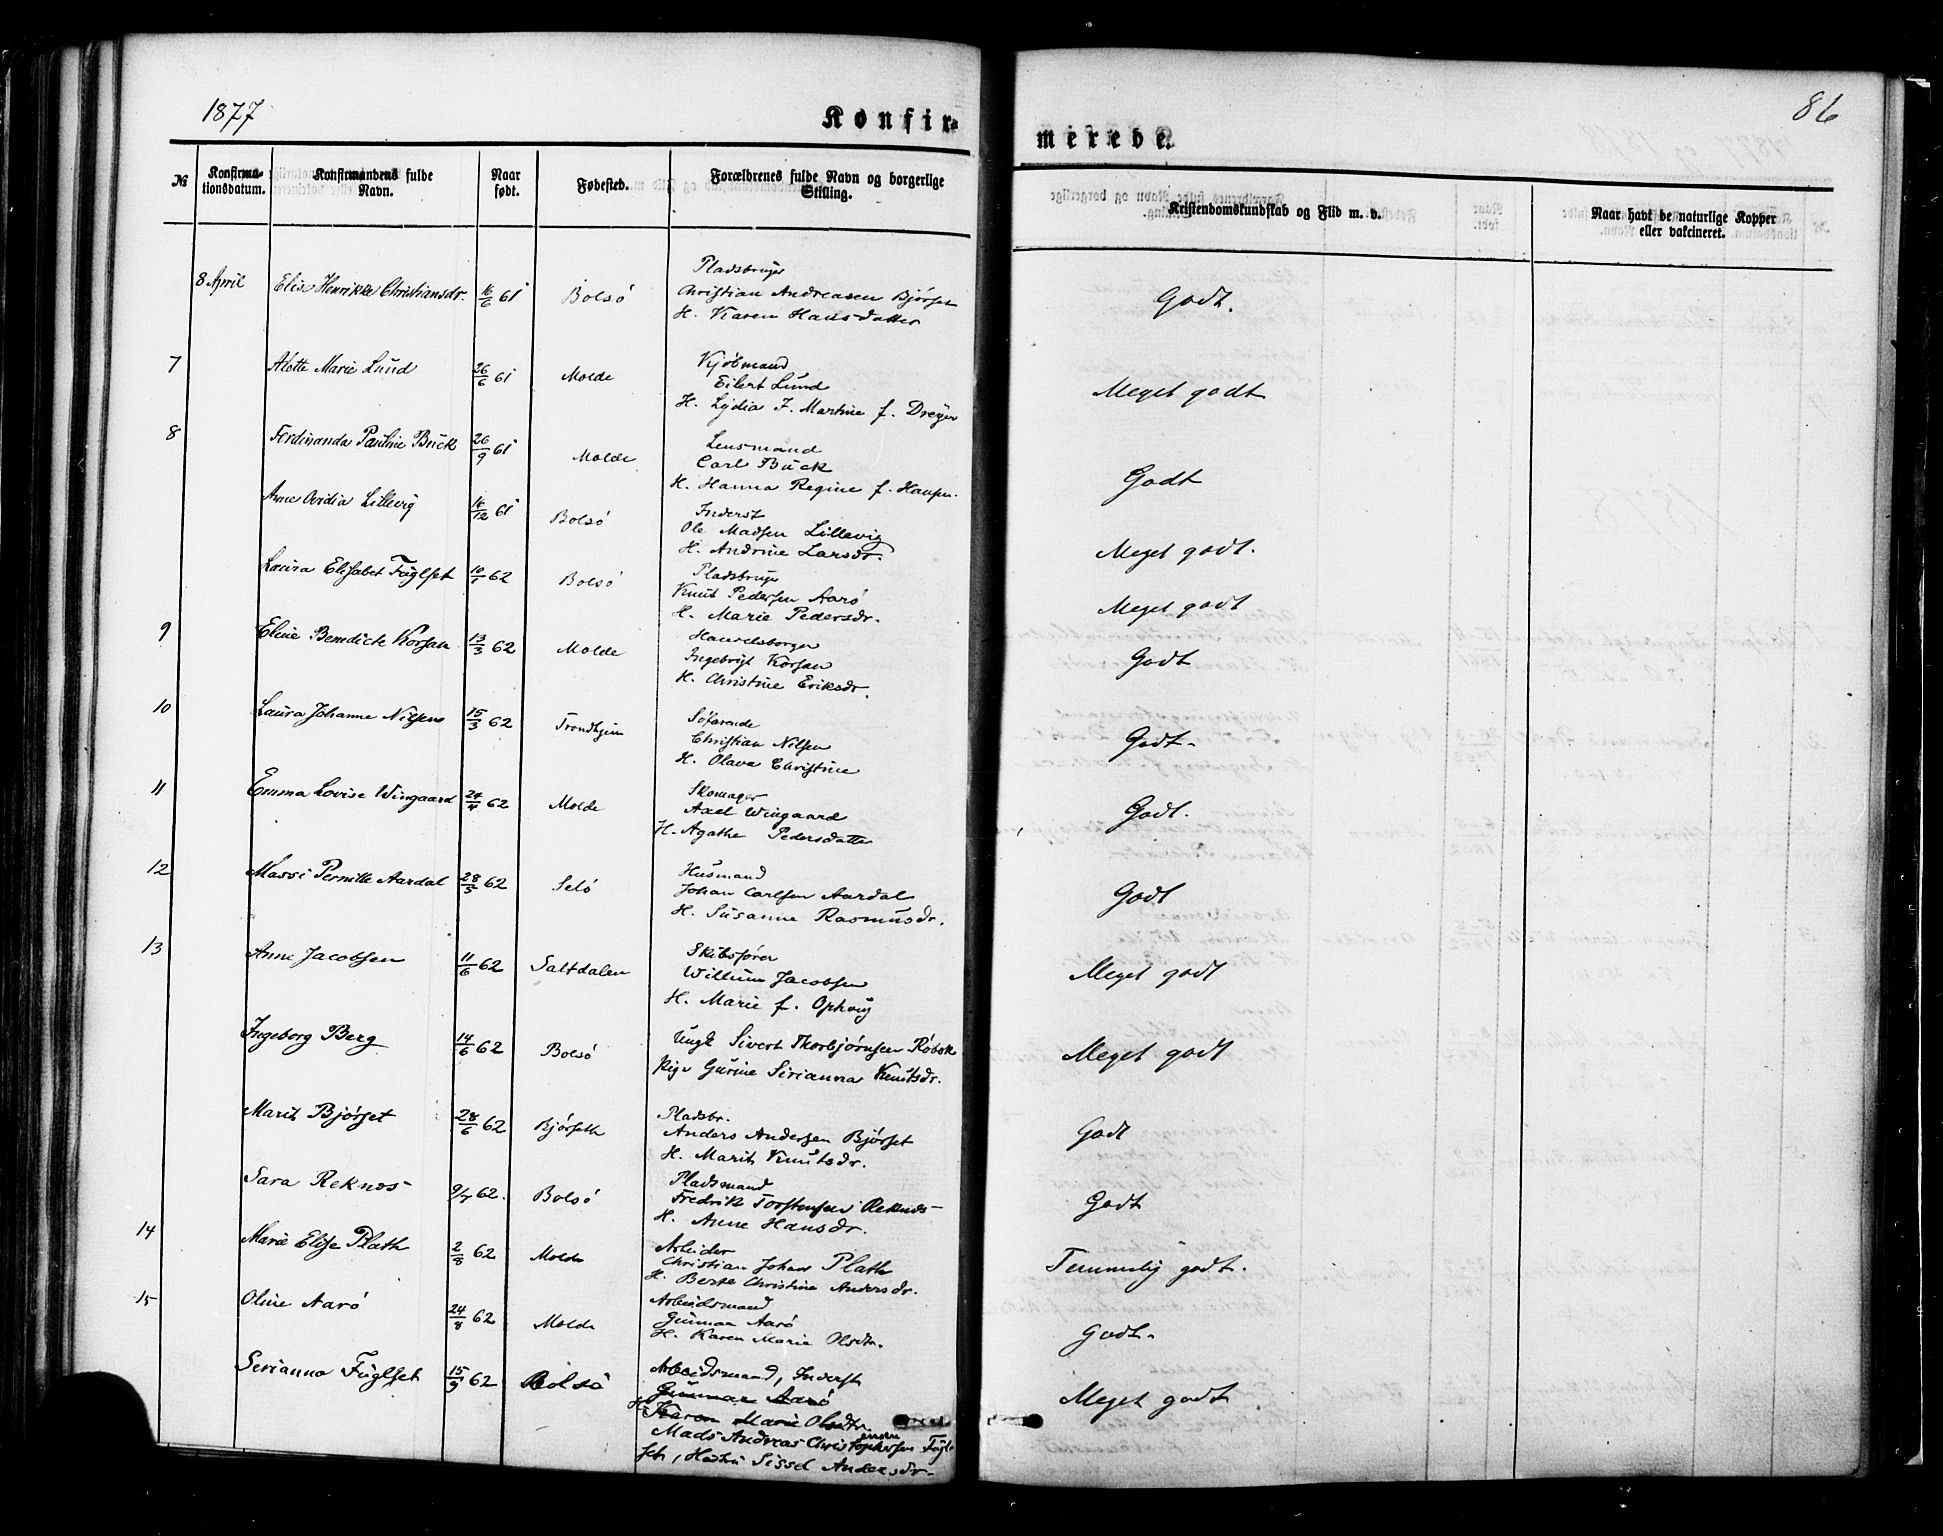 1877
Konfir-
merede.
86
№
Konfirma-
tionsdatum.
Konfirmandens fulde
Navn.
Naar
født.
Fødested.
Forældrenes fulde Navn og borgerlige
Stilling.
Kristendomskundskab og Flid m. v.
Naar havt de naturlige Kopper
eller vakcineret.
8 April Elise Henrikke Christiansdr. 16/6 61 Bolsö
Pladsbruger
Christian Andreasen Bjørset
H. Karen Hansdatter
Godt.
7 Alette Marie Lund 26/6 61 Molde
Kjøbmand
Eilert Lund
H. Lydia J. Martine f. Dreyer
Meget godt
8 Ferdinanda Pauline Buck 26/9 61 Molde
Lensmand
Carl Buck
H. Hanna Regine f. Hansen.
Godt
Ane Ovidia Lillevig 16/12 61 Bolsö
Inderst
Ole Madsen Lillevig
H. Andrine Larsdr.
Meget godt.
Laura Elisabet Fuglset 10/1 62 Bolsö
Pladsbruger
Knut Pedersen Aarö
H. Marie Pedersdr.
Meget godt
9 Eline Benedicte Korsan 13/3 62 Molde
Handelsborger
Ingebrigt Korsan
H. Christine Eriksdr.
Godt
10 Laura Johanne Nilsen 15/3 62 Trondhjem
Søfarende
Christian Nilsen
H. Olava Christine
Godt.
11 Emma Lovise Wingaard 24/4 62 Molde
Skomager
Axel Wingaard
H. Agathe Pedersdatter
Godt.
12 Massi Pernille Aardal 28/5 62 Selö
Husmand
Johan Carlsen Aardal
H. Susanne Rasmusdr.
Godt
13 Anne Jacobsen 11/6 62 Saltdalen
Skibsfører
Willum Jacobsen
H. Marie f. Ophaug
Meget godt
Ingeborg Berg 14/6 62 Bolsö
Ungk Sivert Thorbjørnsen Røbek
Pige Gurine Sirianna Knutsdr.
Meget godt
Marit Bjørset 28/6 62 Bjørseth
Pladsbr.
Anders Andersen Bjørset
H. Marit Knutsdr.
Godt
Sara Reknes 9/7 62. Bolsö
Pladsmand
Fredrik Torstensen Reknes
H. Anne Hansdr.
Godt
14 Marie Elise Plath 2/8 62 Molde
Arbeider
Christian Johan Plath
H. Berte Christine Andersdr.
Temmelig godt.
15 Oline Aarö 24/8 62 Molde
Arbeidsmand
Gunnar Aarö
H. Karen Marie Olsdtr.
Godt.
Serianna Fuglset 15/9 62 Bolsö
Arbeidsmand, Inderst
Gunnar Aarö
H. Karen Marie Olsdtr.
Mads Andreas Christophersen Fugl-
set, Hustru Sissel Andersdr.
Meget godt